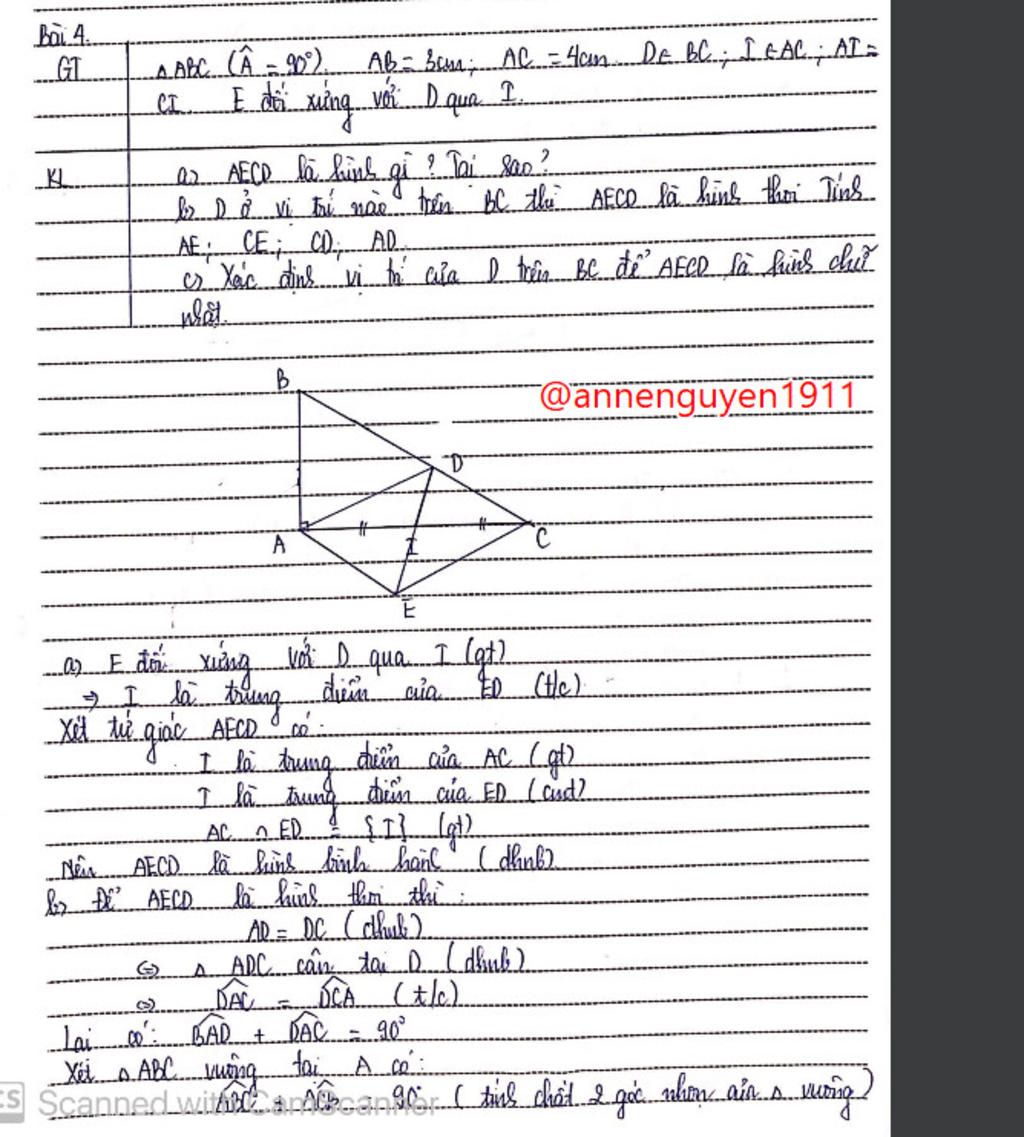 Bài 4.
GT ΔABC (Â = 90°). AB = 3cm; AC = 4cm. D ∈ BC; I ∈ AC; AI =
CI. E đối xứng với D qua I.
KL a) AECD là hình gì? Tại sao?
b) D ở vị trí nào trên BC thì AECD là hình thoi Tính
AE; CE; CD; AD.
c) Xác định vị trí của D trên BC để AECD là hình chữ
nhật.
B
@annenguyen1911
D
A
I
C
E
a) E đối xứng với D qua I (gt)
⇒ I là trung điểm của ED (t/c)
Xét tứ giác AECD có:
I là trung điểm của AC (gt)
I là trung điểm của ED (cmt)
AC ∩ ED = {I} (gt)
Nên AECD là hình bình hành (dhnb)
b) Để AECD là hình thoi thì:
AD = DC (dhnb)
⇔ Δ ADC cân tại D (dhnb)
⇔ D̂AC = D̂CA (t/c)
Lại có: B̂AD + D̂AC = 90°
Xét ΔABC vuông tại A có:
ÂBC + ÂCB = 90° (tính chất 2 góc nhọn của Δ vuông)
CS Scanned with CamScanner